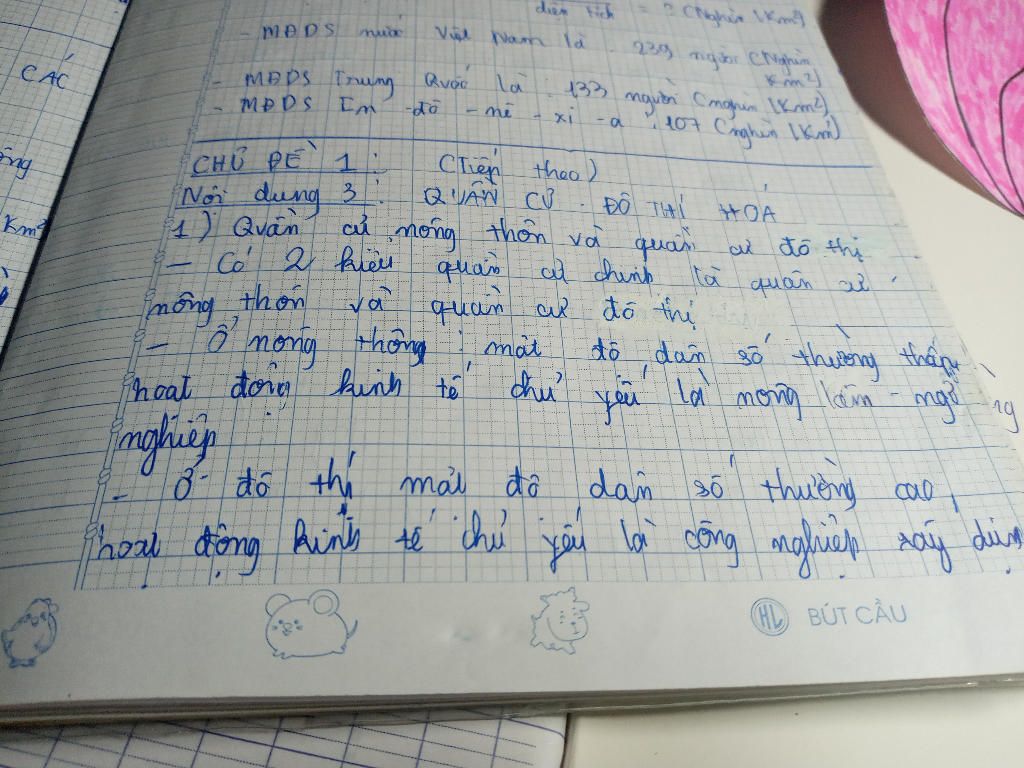 diện tích = ? (Nghìn /Km²)
- MĐDS nước Việt Nam là : 239 người (Nghìn Km²)
- MĐDS Trung Quốc là : 133 người (nghìn /Km²)
- MĐDS In - đô - nê - xi - a : 107 (nghìn /Km²)
CHỦ ĐỀ 1 : (Tiếp theo)
Nội dung 3 : QUẦN CƯ . ĐÔ THỊ HOÁ
1) Quần cư nông thôn và quần cư đô thị
- Có 2 kiểu quần cư chính là quần cư
nông thôn và quần cư đô thị
- Ở nông thông : mât đô dân số thường thấp,
hoat đông kinh tế chủ yếu là nông lâm - ngư
nghiêp
- Ở đô thị mât đô dân số thường cao,
hoat động kinh tế chủ yếu là công nghiệp xây dưn
CÁC
Km²
HL BÚT CẦU